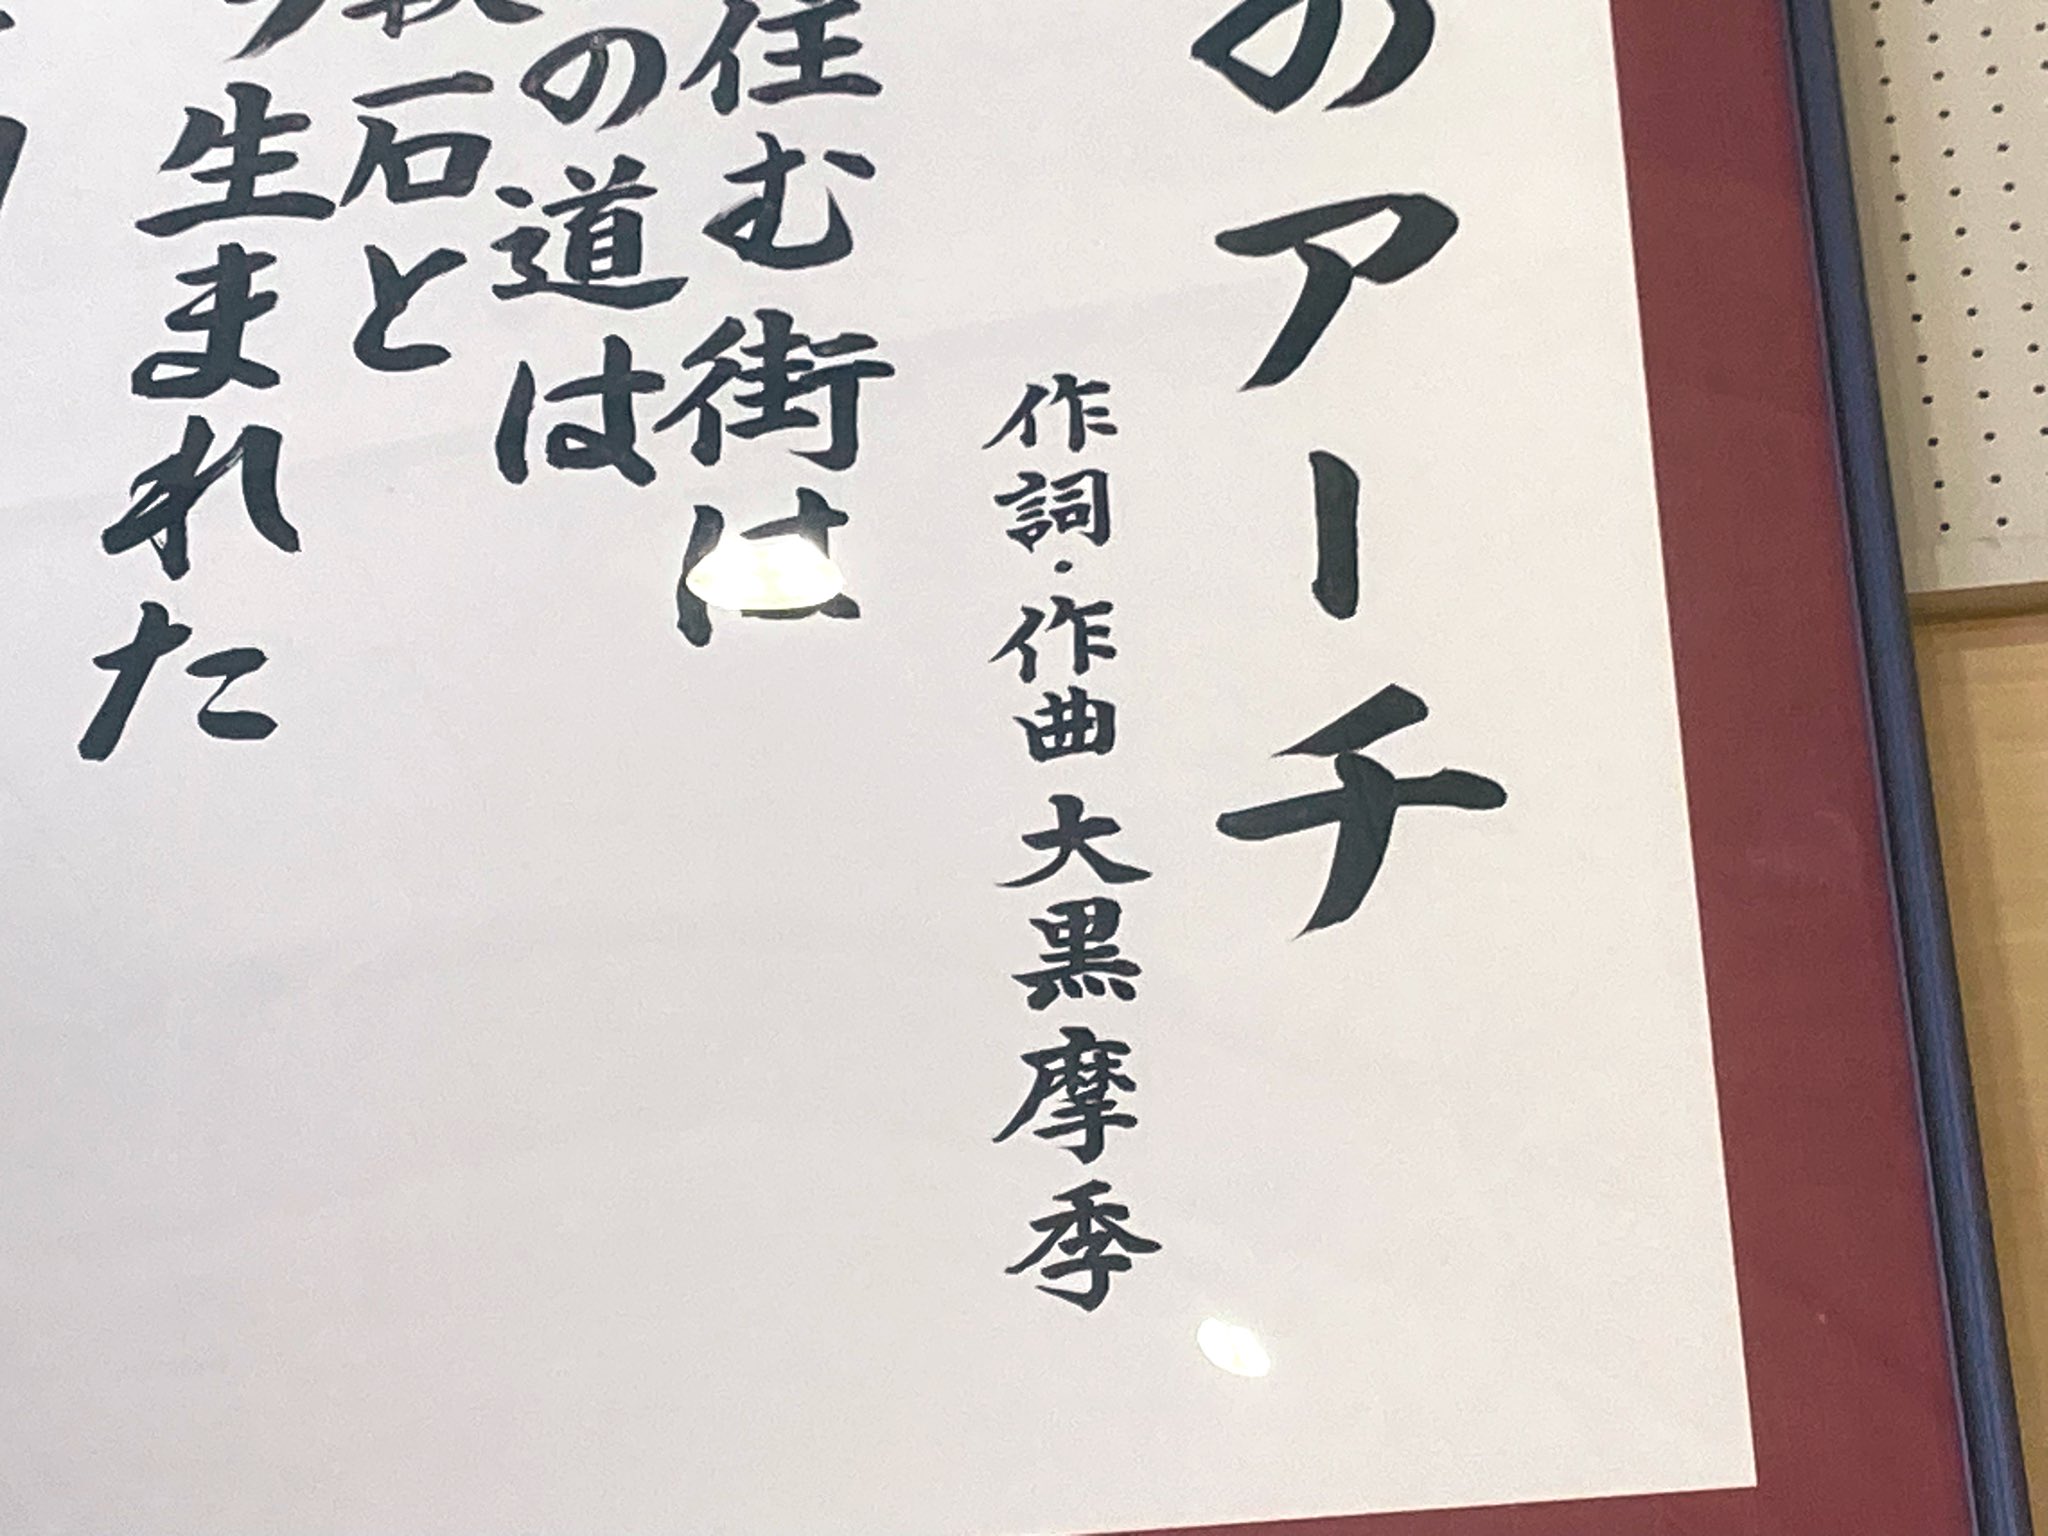 のアーチ
作詞・作曲 大黒摩季
住む街は
の道は
石と
生まれた